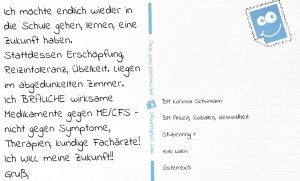 Ich möchte endlich wieder in
die Schule gehen, lernen, eine
Zukunft haben.
Stattdessen Erschöpfung,
Reizintoleranz, Übelkeit. Liegen
im abgedunkelten Zimmer.
Ich BRAUCHE wirksame
Medikamente gegen ME/CFS -
nicht gegen Symptome,
Therapien, kundige Fachärzte!
Ich will meine Zukunft!!
Gruß,
BM Korinna Schumann
BM Arbeit, Soziales, Gesundheit
Stubenring 1
1010 Wien
Österreich